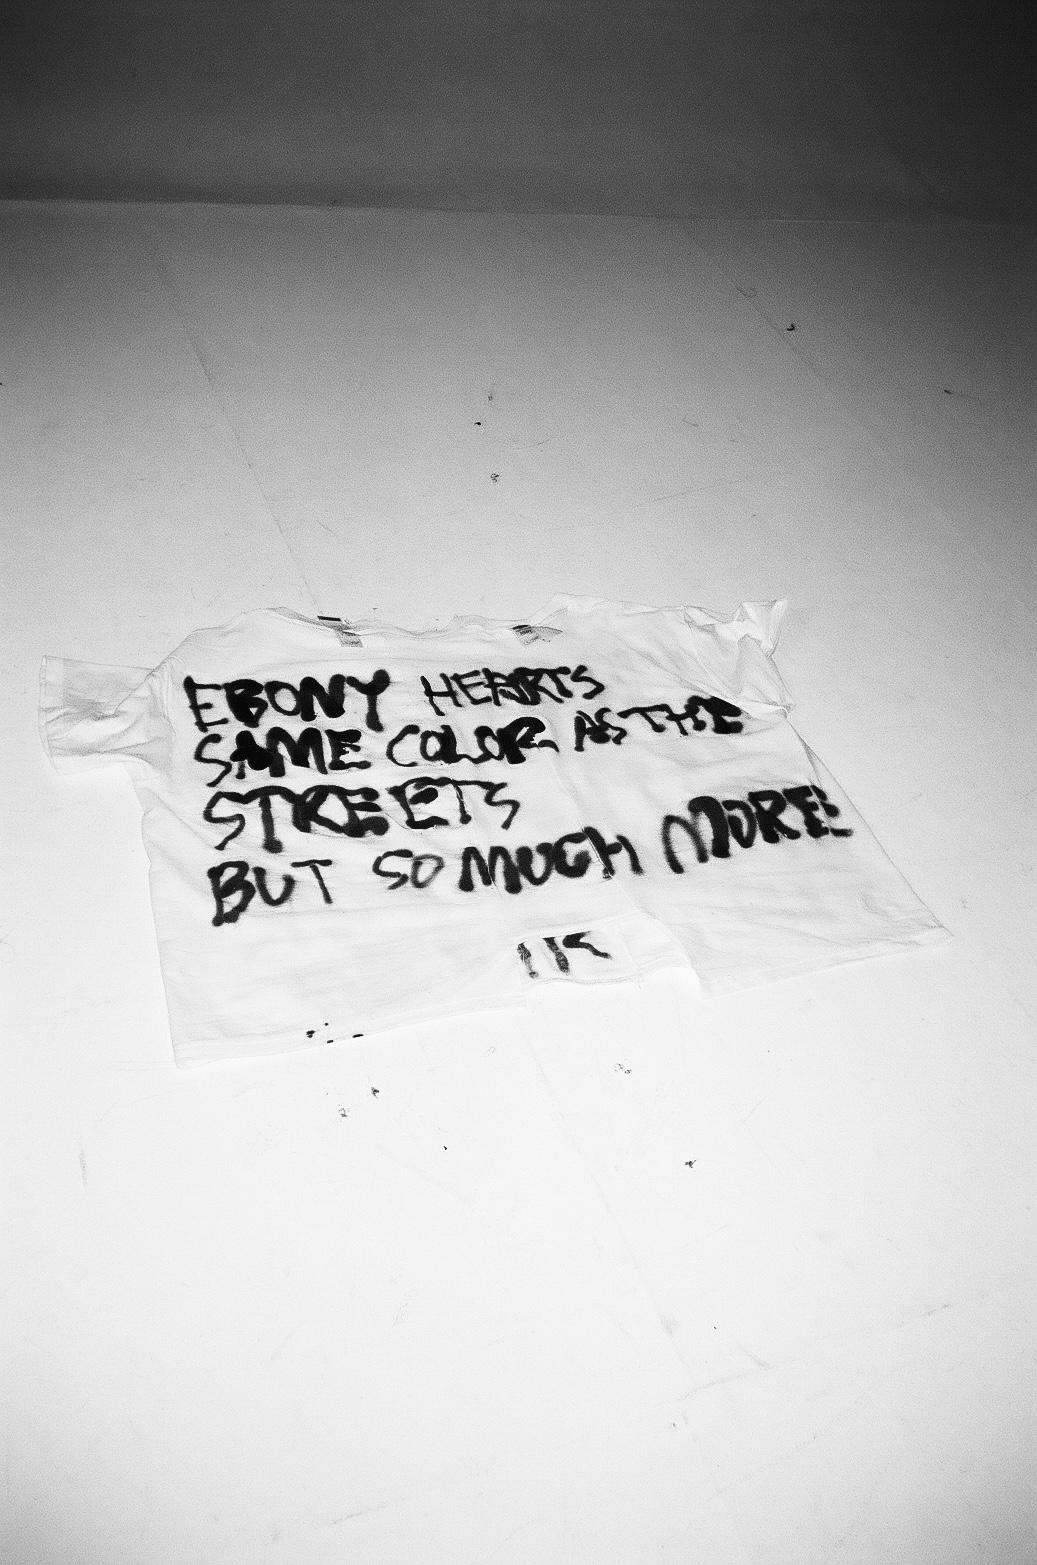 EBONY HEARTS
SAME COLOR AS THE
STREETS
BUT SO MUCH MORE!